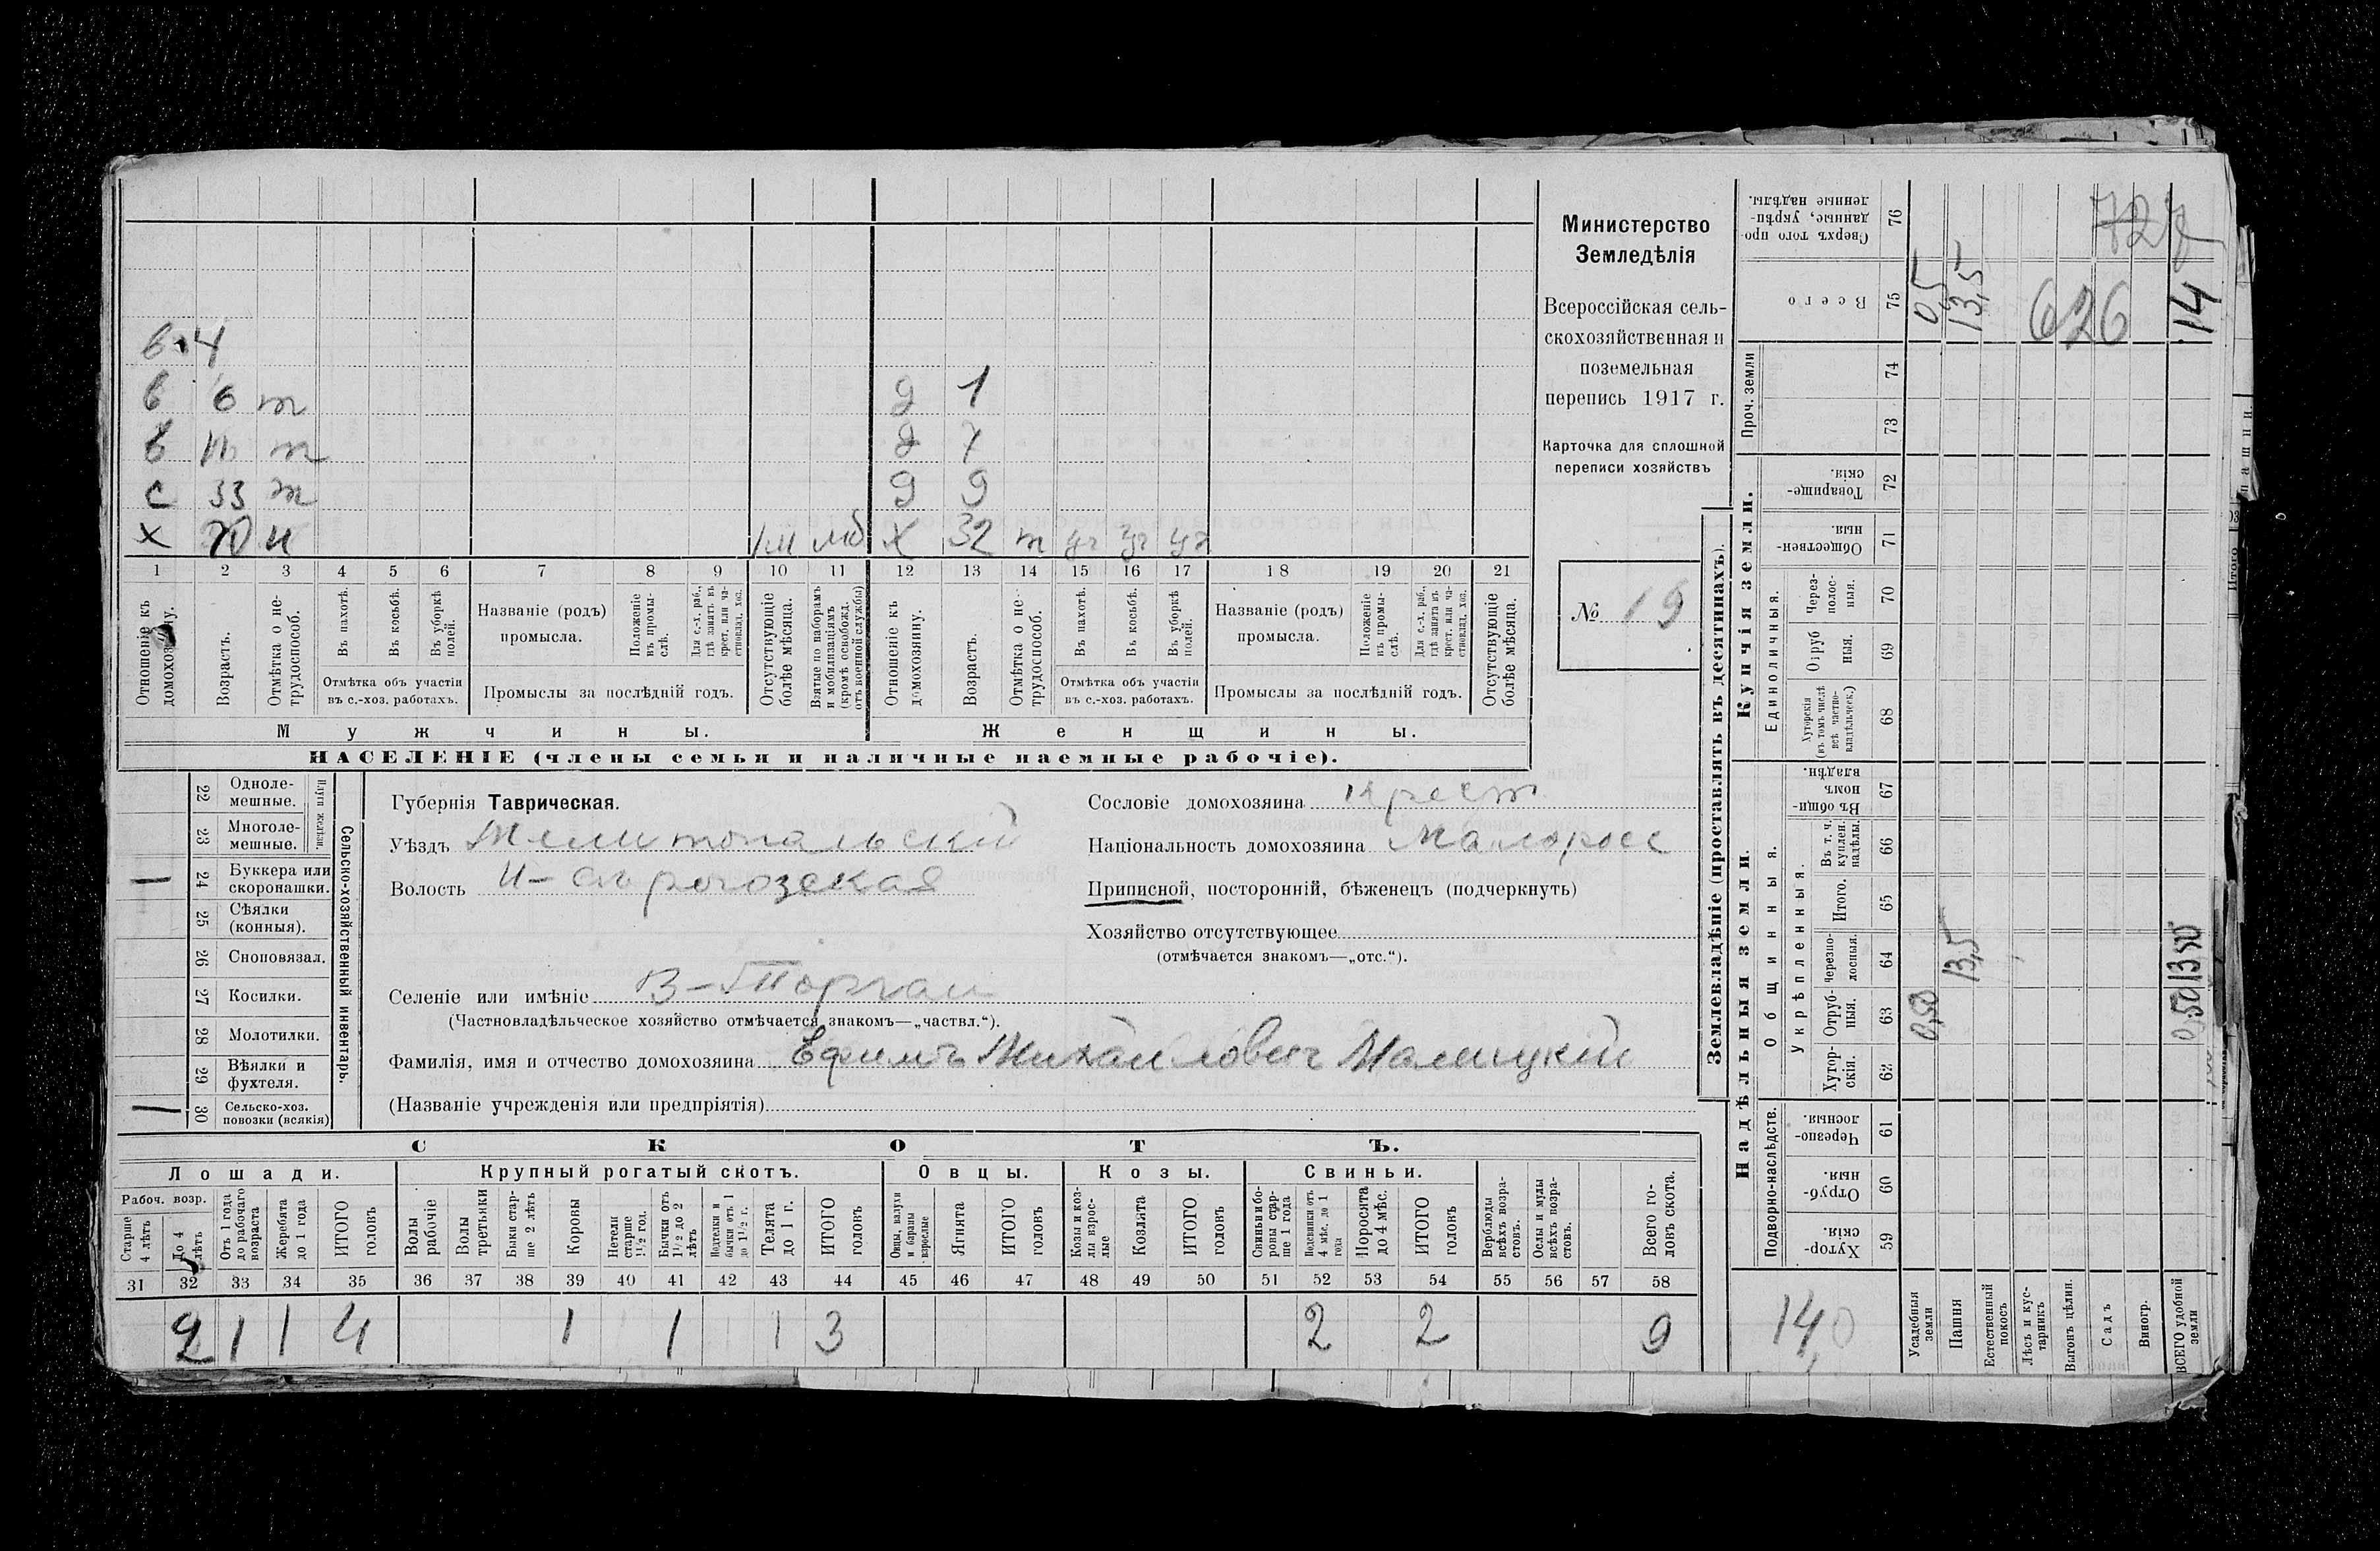 в 4
в 6 т
в 10 т
с 33 т
х 70 н
д 1
д 7
д 9
х 32 т
1 2 3 4 5 6 7 8 9 10 11 12 13 14 15 16 17 18 19 20 21
Отношеніе къ домохозяину.
Возрастъ.
Отмѣтка о нетрудоспособ.
Въ пахотѣ.
Въ косьбѣ.
Въ уборкѣ полей.
Отмѣтка объ участіи въ с.-хоз. работахъ.
Названіе (родъ) промысла.
Положеніе въ промыслѣ.
Для с.-х. раб., гдѣ занятъ въ крест. или частновлад. хоз.
Промыслы за послѣдній годъ.
Отсутствующіе болѣе мѣсяца.
Взятые по наборамъ и мобилизаціямъ (кромѣ освобожд. отъ военной службы)
Отношеніе къ домохозяину.
Возрастъ.
Отмѣтка о нетрудоспособ.
Въ пахотѣ.
Въ косьбѣ.
Въ уборкѣ полей.
Отмѣтка объ участіи въ с.-хоз. работахъ.
Названіе (родъ) промысла.
Положеніе въ промыслѣ.
Для с.-х. раб., гдѣ занята въ крест. или частновлад. хоз.
Промыслы за послѣдній годъ.
Отсутствующіе болѣе мѣсяца.
Мужчины.
Женщины.
НАСЕЛЕНІЕ (члены семьи и наличные наемные рабочіе).
Министерство
Земледѣлія
Всероссійская сель-
скохозяйственная и
поземельная
перепись 1917 г.
Карточка для сплошной
переписи хозяйствъ
№ 19
22 Одноле-
мешные.
23 Многоле-
мешные.
Плуги желѣзн.
24 Буккера или
скоропашки.
25 Сѣялки
(конныя).
26 Сноповязал.
27 Косилки.
28 Молотилки.
29 Вѣялки и
фухтеля.
30 Сельско-хоз.
повозки (всякія)
Сельско-хозяйственный инвентарь.
Губернія Таврическая.
Уѣздъ Мелитопальскій
Волость Н-Сѣрогозская
Селеніе или имѣніе В-Торгаи
(Частновладѣльческое хозяйство отмѣчается знакомъ—„частвл.“).
Фамилія, имя и отчество домохозяина Ефимъ Михайловичъ Малицкій
(Названіе учрежденія или предпріятія)
Сословіе домохозяина крест.
Національность домохозяина Малоросс
Приписной, посторонній, бѣженецъ (подчеркнуть)
Хозяйство отсутствующее
(отмѣчается знакомъ—„отс.“).
СКОТЪ.
Лошади.
Крупный рогатый скотъ.
Овцы.
Козы.
Свиньи.
Рабоч. возр.
Старше 4 лѣтъ
До 4 лѣтъ
Отъ 1 года до рабочаго возраста
Жеребята до 1 года
ИТОГО головъ
Волы рабочіе
Волы третьяки
Быки старше 2 лѣтъ
Коровы
Нетели старше 1½ год.
Бычки отъ 1½ до 2 лѣтъ
Подтелки и бычки отъ 1 до 1½ г.
Телята до 1 г.
ИТОГО головъ
Овцы, валухи и бараны взрослые
Ягнята
ИТОГО головъ
Козы и козлы взрослые
Козлята
ИТОГО головъ
Свиньи и боровы старше 1 года
Подсвинки отъ 4 мѣс. до 1 года
Поросята до 4 мѣс.
ИТОГО головъ
Верблюды всѣхъ возрастовъ.
Ослы и мулы всѣхъ возрастовъ.
Всего головъ скота.
31 32 33 34 35 36 37 38 39 40 41 42 43 44 45 46 47 48 49 50 51 52 53 54 55 56 57 58
2 1 1 4 1 1 1 3 2 2 9
Землевладѣніе (проставлять въ десятинахъ).
Надѣльныя земли.
Купчія земли.
Проч. земли
Подворно-наслѣдств.
Общинныя.
Укрѣпленныя.
Единоличныя.
Хуторскія. 59
Отрубныя. 60
Черезполосныя. 61
Хуторскія. 62
Отрубныя. 63
Черезполосныя. 64
Итого. 65
Въ т. ч. куплен. надѣлы. 66
Въ общинномъ владѣн. 67
Хуторскія (въ томъ числѣ всѣ частновладѣльческ.) 68
Отрубныя. 69
Черезполосныя. 70
Общественныя. 71
Товарищескія. 72
73
74
Всего 75
Сверхъ того проданные, укрѣпленные надѣлы. 76
Усадебныя земли
Пашня
Естественный покосъ
Лѣсъ и кустарникъ
Выгонъ цѣлин.
Садъ
Виногр.
ВСЕГО удобной земли
14,0
0,50
13,5
0,50 13 50
0,5
13,5
14
626
727